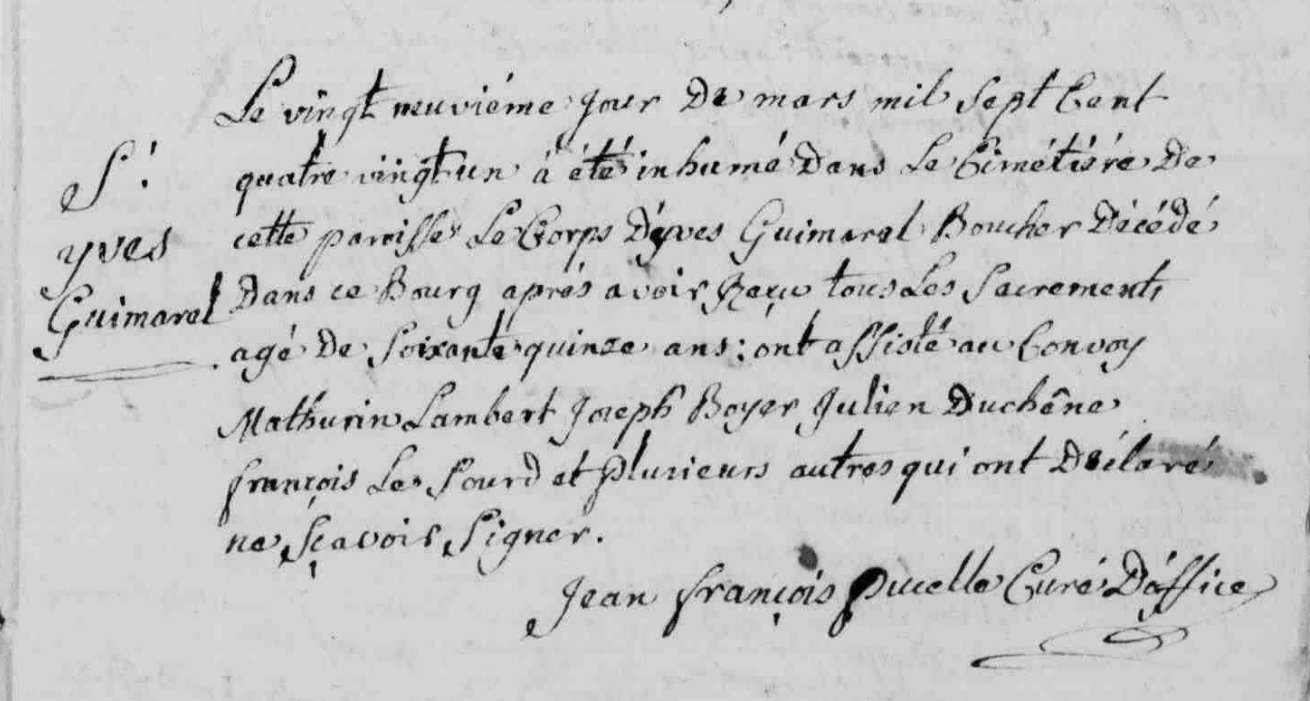 S.
yves
Guimarel
Le vingt neuviéme jour De mars mil Sept Cent
quatre vingt un à été inhumé Dans Le Cimétiére De
cette paroisse Le Corps D'yves Guimarel Boucher Décédé
Dans ce Bourg aprés avoir Reçu tous Les Sacrements
agé De Soixante quinze ans: ont assisté au Convoy
Mathurin Lambert Joseph Boyer Julien Duchêne
françois Le Sourd et plusieurs autres qui ont Déclaré
ne Sçavoir Signer.
Jean françois Pucelle Curé D'office